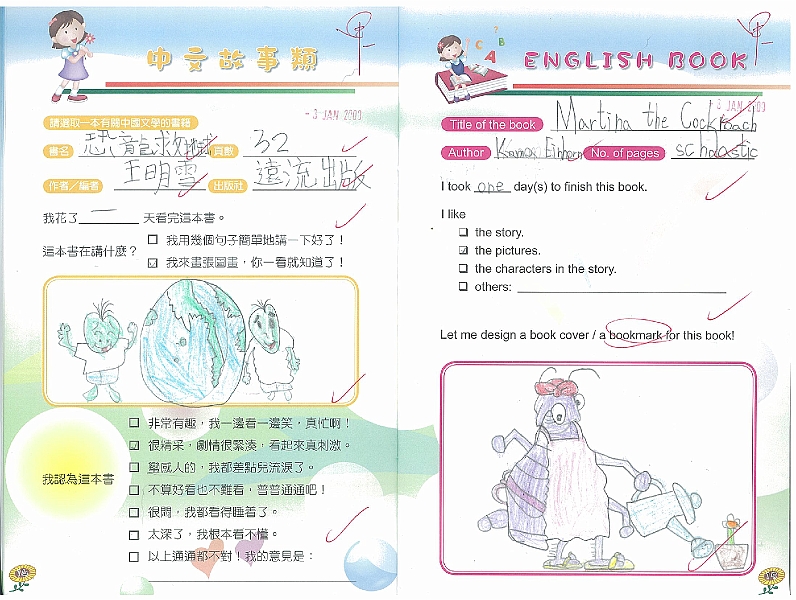 中文故事類
- 3 JAN
請選取一本有關中國文學的書籍
書名 恐龍救地球 頁數 32
作者／編者 王明雪 出版社 遠流出版
我花了 一 天看完這本書。
這本書在講什麼？
我用幾個句子簡單地講一下好了！
我來畫張圖畫，你一看就知道了！
我認為這本書
非常有趣，我一邊看一邊笑，真忙啊！
很精采，劇情很緊湊，看起來真刺激。
蠻感人的，我都差點兒流淚了。
不算好看也不難看，普普通通吧！
很悶，我都看得睡着了。
太深了，我根本看不懂。
以上通通都不對！我的意見是：
ENGLISH BOOK
3 JAN
Title of the book Martina the Cockroach
Author Einhorn No. of pages scholastic
I took one day(s) to finish this book.
I like
the story.
the pictures.
the characters in the story.
others:
Let me design a book cover / a bookmark for this book!